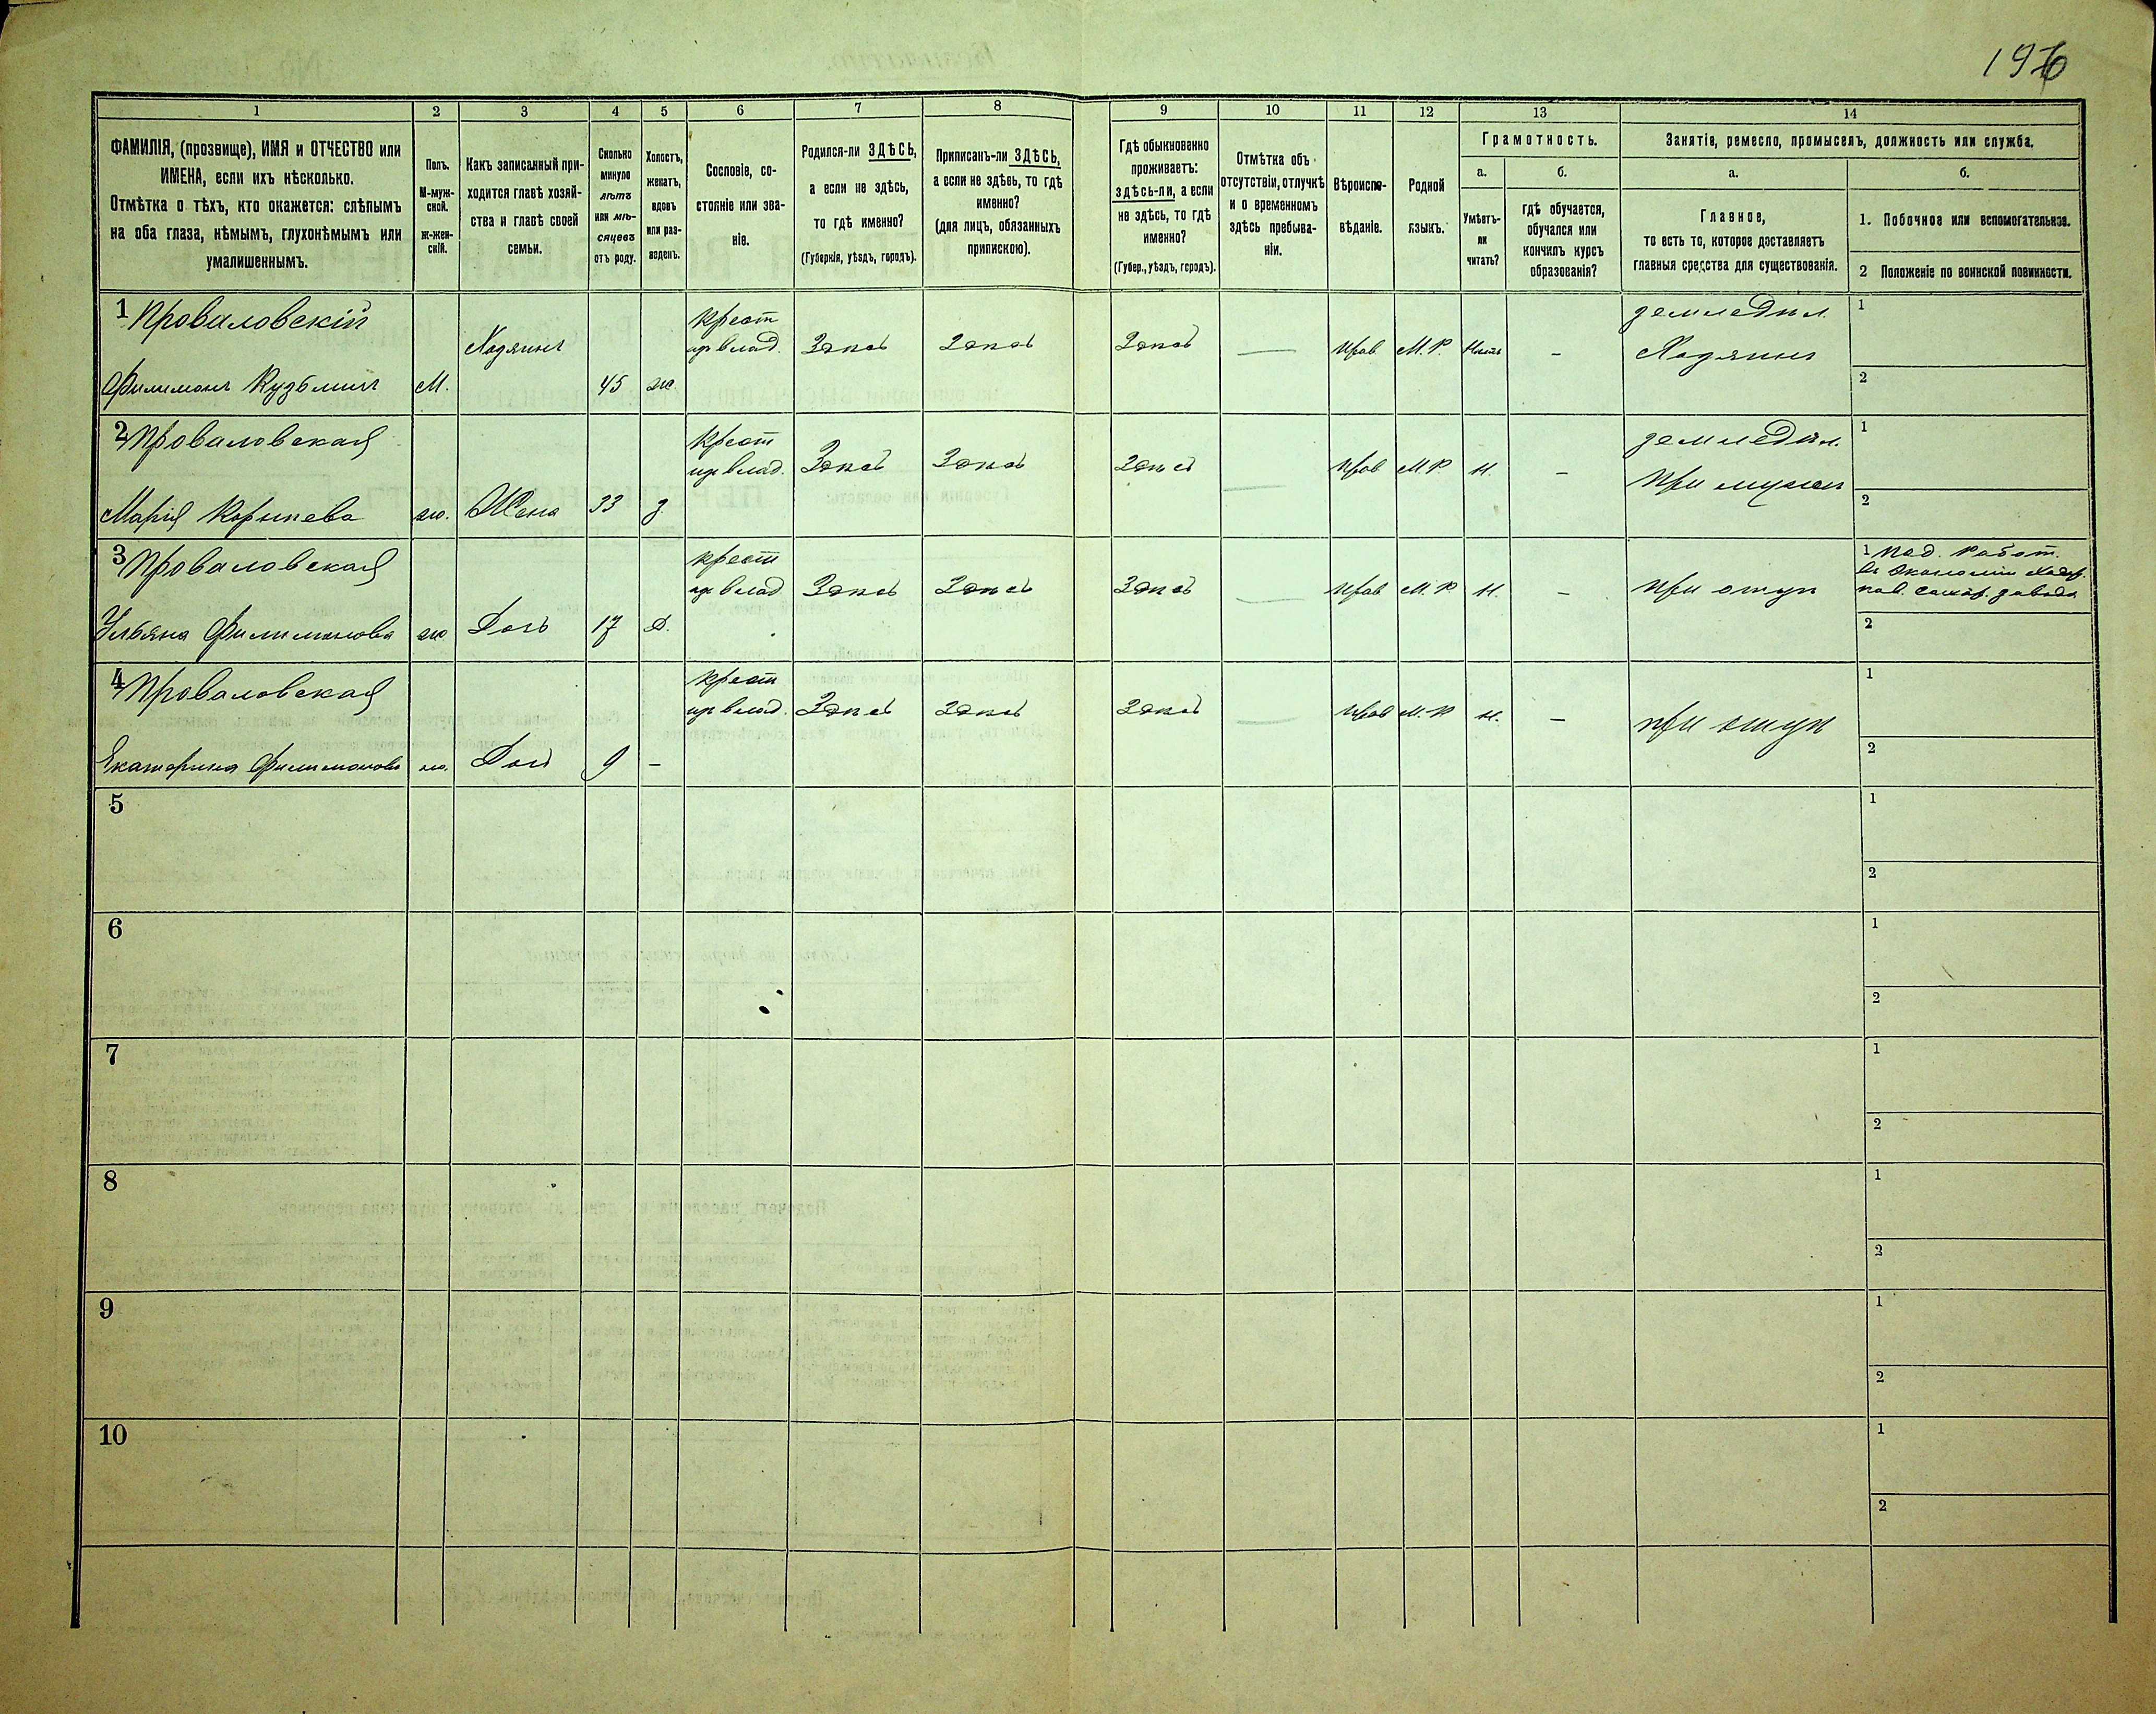 196
1 2 3 4 5 6 7 8 9 10 11 12 13 14
ФАМИЛІЯ, (прозвище), ИМЯ и ОТЧЕСТВО или
ИМЕНА, если ихъ нѣсколько.
Отмѣтка о тѣхъ, кто окажется: слѣпымъ
на оба глаза, нѣмымъ, глухонѣмымъ или
умалишеннымъ.
Полъ.
М-муж-
ской.
ж-жен-
скій.
Какъ записанный при-
ходится главѣ хозяй-
ства и главѣ своей
семьи.
Сколько
минуло
лѣтъ
или мѣ-
сяцевъ
отъ роду.
Холостъ,
женатъ,
вдовъ
или раз-
веденъ.
Сословіе, со-
стояніе или зва-
ніе.
Родился-ли ЗДѢСЬ,
а если не здѣсь,
то гдѣ именно?
(Губернія, уѣздъ, городъ).
Приписанъ-ли ЗДѢСЬ,
а если не здѣсь, то гдѣ
именно?
(для лицъ, обязанныхъ
припискою).
Гдѣ обыкновенно
проживаетъ:
здѣсь-ли, а если
не здѣсь, то гдѣ
именно?
(Губер., уѣздъ, городъ).
Отмѣтка объ
отсутствіи, отлучкѣ
и о временномъ
здѣсь пребыва-
ніи.
Вѣроиспо-
вѣданіе.
Родной
языкъ.
Грамотность.
а.
Умѣетъ-
ли
читать?
б.
гдѣ обучается,
обучался или
кончилъ курсъ
образованія?
Занятіе, ремесло, промыселъ, должность или служба.
а.
Главное,
то есть то, которое доставляетъ
главныя средства для существованія.
б.
1. Побочное или вспомогательное.
2 Положеніе по воинской повинности.
1 Проваловскій
Филимонъ Кузьминъ
М.
Хозяинъ
45
ж.
крест
из влад.
Здѣсь
Здѣсь
Здѣсь
—
Прав
М. Р.
Нѣтъ
–
земледѣл.
Хозяинъ
1
2
2 Проваловская
Марія Корнѣева
ж.
Жена
33
з.
крест
из влад.
Здѣсь
Здѣсь
Здѣсь
—
Прав
М. Р.
Н.
–
земледѣл.
При мужѣ
1
2
3 Проваловская
Ульяна Филимонова
ж.
Дочь
17
Д.
крест
из влад
Здѣсь
Здѣсь
Здѣсь
—
Прав
М. Р.
Н.
–
При отцѣ
1 Под. Работ.
въ Экономіи
сахар. завода
2
4 Проваловская
Екатерина Филимонова
ж.
Дочь
9
–
крест
из влад.
Здѣсь
Здѣсь
Здѣсь
—
Прав
М. Р.
Н.
–
при отцѣ
1
2
5
1
2
6
1
2
7
1
2
8
1
2
9
1
2
10
1
2